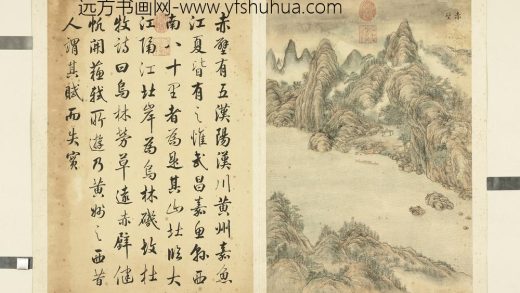 远方书画网-www.yfshuhua.com
赤壁
赤壁有五漢陽漢川黄州嘉魚
江夏皆有之惟武昌嘉魚縣西
南八十里者為是其山北臨大
江隔江北岸為烏林磯故杜
牧詩曰烏林芳草遠赤壁健
帆開蘇軾所遊乃黄州之西昔
人謂其賦而失實